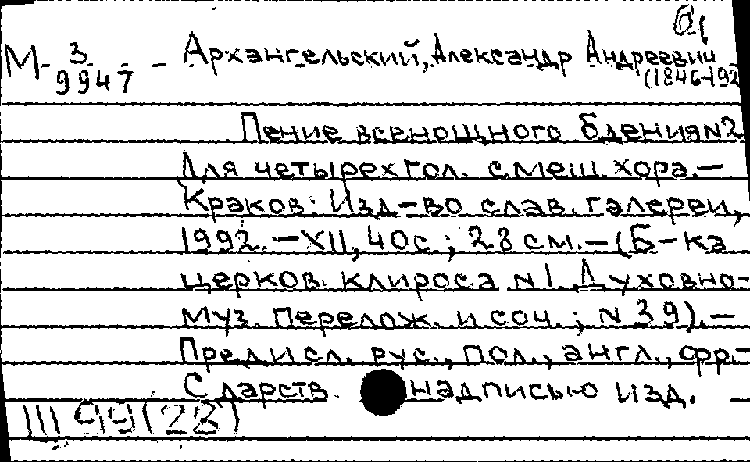 М-3 - Архангельский, Александр Андреевич
9947 (1846-192
Пение всенощного бдения №2
Для четырехгол. смеш. хора.—
Краков: Изд-во слав. галереи,
1992.—XII, 40с.; 28 см.—(Б-ка
церков. клироса №1. Духовно-
муз. перелож. и соч.; №39).—
Предисл. рус., пол., англ., фр.—
С дарств. надписью изд.
III 99(28)